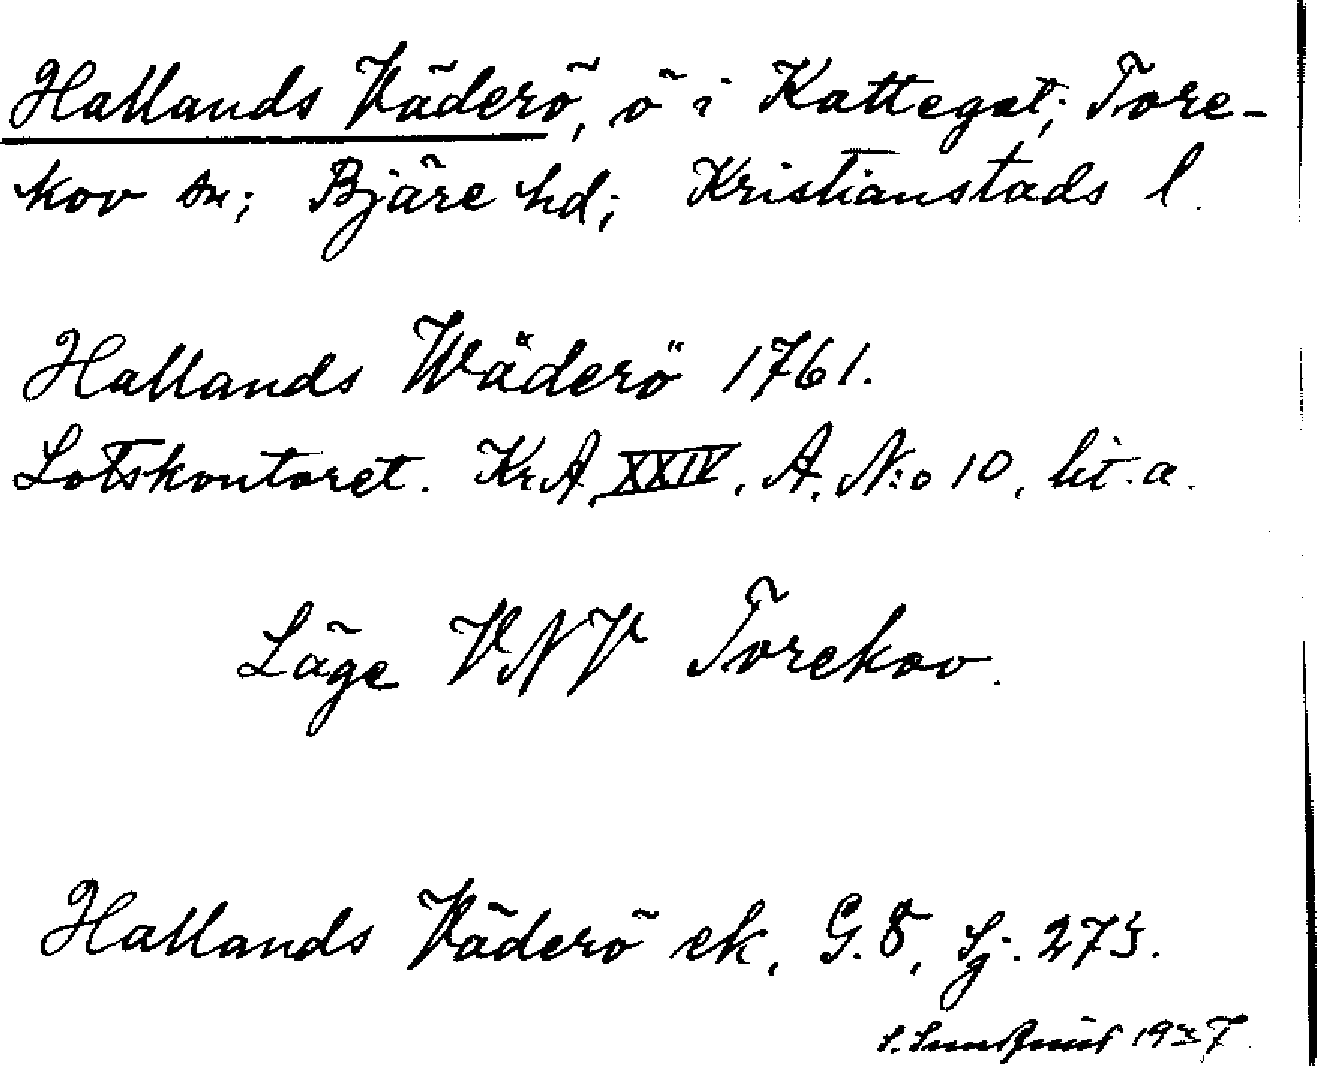 Hallands Väderö, ö i Kattegat; Tore-
kov sn; Bjäre hd; Kristianstads l.
Hallands Wäderö 1761.
Lotskontoret. KrA, XXIV, A, N:o 10, lit. a.
Läge VNV Torekov.
Hallands Väderö ek, G. 8, Sj. 275.